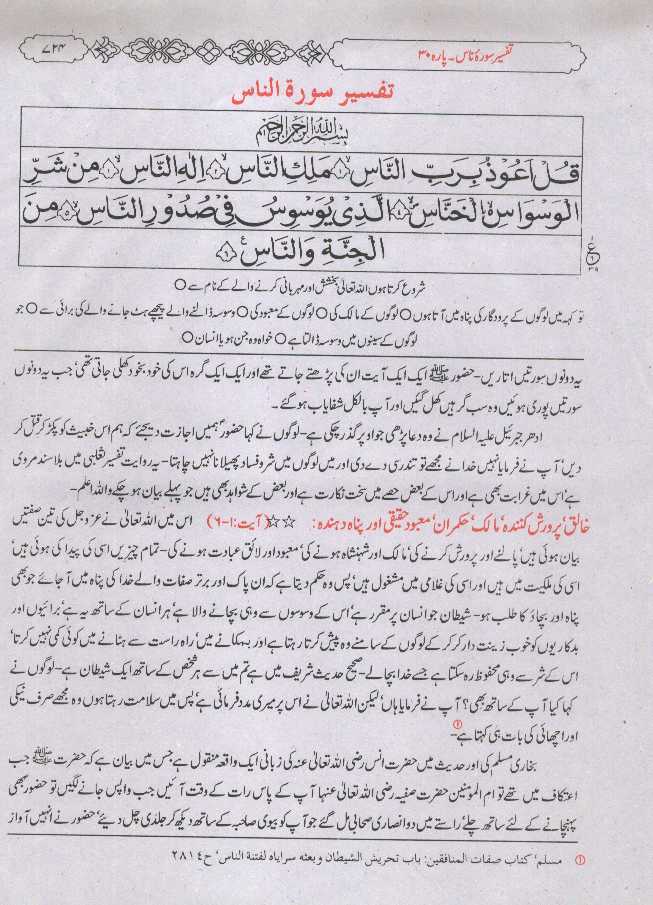 تفسیر سورۂ ناس۔ پارہ ۳۰
۷۲۴
تفسیر سورة الناس
بِسْمِ اللّٰهِ الرَّحْمٰنِ الرَّحِیْمِ
قُلْ اَعُوْذُ بِرَبِّ النَّاسِ ۙ۱ مَلِكِ النَّاسِ ۙ۲ اِلٰهِ النَّاسِ ۙ۳ مِنْ شَرِّ
الْوَسْوَاسِ ۙ الْخَنَّاسِ ۪ۙ۴ الَّذِیْ یُوَسْوِسُ فِیْ صُدُوْرِ النَّاسِ ۙ۵ مِنَ
الْجِنَّةِ وَالنَّاسِ ۶
شروع کرتا ہوں اللہ تعالیٰ بخشش اور مہربانی کرنے والے کے نام سے ○
تو کہہ میں لوگوں کے پروردگار کی پناہ میں آتا ہوں ○ لوگوں کے مالک کی ○ لوگوں کے معبود کی ○ وسوسہ ڈالنے والے پیچھے ہٹ جانے والے کی برائی سے ○ جو
لوگوں کے سینوں میں وسوسہ ڈالتا ہے ○ خواہ وہ جن ہو یا انسان ○
یہ دونوں سورتیں اتاریں- حضور ﷺ ایک ایک آیت ان کی پڑھتے جاتے تھے اور ایک ایک گرہ اس کی خود بخود کھلی جاتی تھی' جب یہ دونوں
سورتیں پوری ہوئیں وہ سب گرہیں کھل گئیں اور آپ بالکل شفایاب ہو گئے-
ادھر جبرئیل علیہ السلام نے وہ دعا پڑھی جو اوپر گذر چکی ہے- لوگوں نے کہا حضور ہمیں اجازت دیجئے کہ ہم اس خبیث کو پکڑ کر قتل کر
دیں' آپ نے فرمایا نہیں خدا نے مجھے تو تندرستی دے دی اور میں لوگوں میں شر و فساد پھیلانا نہیں چاہتا- یہ روایت تفسیر ثعلبی میں بلا سند مروی
ہے' اس میں غرابت بھی ہے اور اس کے بعض حصے میں سخت نکارت ہے اور بعض کے شواہد بھی ہیں جو پہلے بیان ہو چکے واللہ اعلم-
خالق' پرورش کنندہ' مالک' حکمران' معبود حقیقی اور پناہ دہندہ: ☆☆ (آیت:۱-۶) اس میں اللہ تعالیٰ نے عز و جل کی تین صفتیں
بیان ہوئی ہیں' پالنے اور پرورش کرنے کی' مالک اور شہنشاہ ہونے کی' معبود اور لائق عبادت ہونے کی- تمام چیزیں اسی کی پیدا کی ہوئی ہیں'
اسی کی ملکیت میں ہیں اور اسی کی غلامی میں مشغول ہیں' پس وہ حکم دیتا ہے کہ ان پاک اور برتر صفات والے خدا کی پناہ میں آ جائے جو بھی
پناہ اور بچاؤ کا طلب ہو- شیطان جو انسان پر مقرر ہے' اس کے وسوسوں سے وہی بچانے والا ہے' ہر انسان کے ساتھ یہ ہے' برائیوں اور
بدکاریوں کو خوب زینت دار کر کے لوگوں کے سامنے وہ پیش کرتا رہتا ہے اور بہکانے میں' راہ راست سے ہٹانے میں کوئی کمی نہیں کرتا'
اس کے شر سے وہی محفوظ رہ سکتا ہے جسے خدا بچا لے- صحیح حدیث شریف میں ہے تم میں سے ہر شخص کے ساتھ ایک شیطان ہے- لوگوں نے
کہا کیا آپ کے ساتھ بھی؟ آپ نے فرمایا ہاں' لیکن اللہ تعالیٰ نے اس پر میری مدد فرمائی ہے' پس میں سلامت رہتا ہوں وہ مجھے صرف نیکی
اور اچھائی کی بات ہی کہتا ہے-①
بخاری مسلم کی اور حدیث میں حضرت انس رضی اللہ تعالیٰ عنہ کی زبانی ایک واقعہ منقول ہے جس میں بیان ہے کہ حضرت ﷺ جب
اعتکاف میں تھے تو ام المومنین حضرت صفیہ رضی اللہ تعالیٰ عنہا آپ کے پاس رات کے وقت آئیں جب واپس جانے لگیں تو حضور بھی
پہنچانے کے لئے ساتھ چلے' راستے میں دو انصاری صحابی مل گئے جو آپ کو بیوی صاحبہ کے ساتھ دیکھ کر جلدی چل دیئے' حضور نے انہیں آواز
① مسلم' کتاب صفات المنافقین: باب تحریش الشیطان و بعثه سرایاه لفتنة الناس' ح ۲۸۱۴